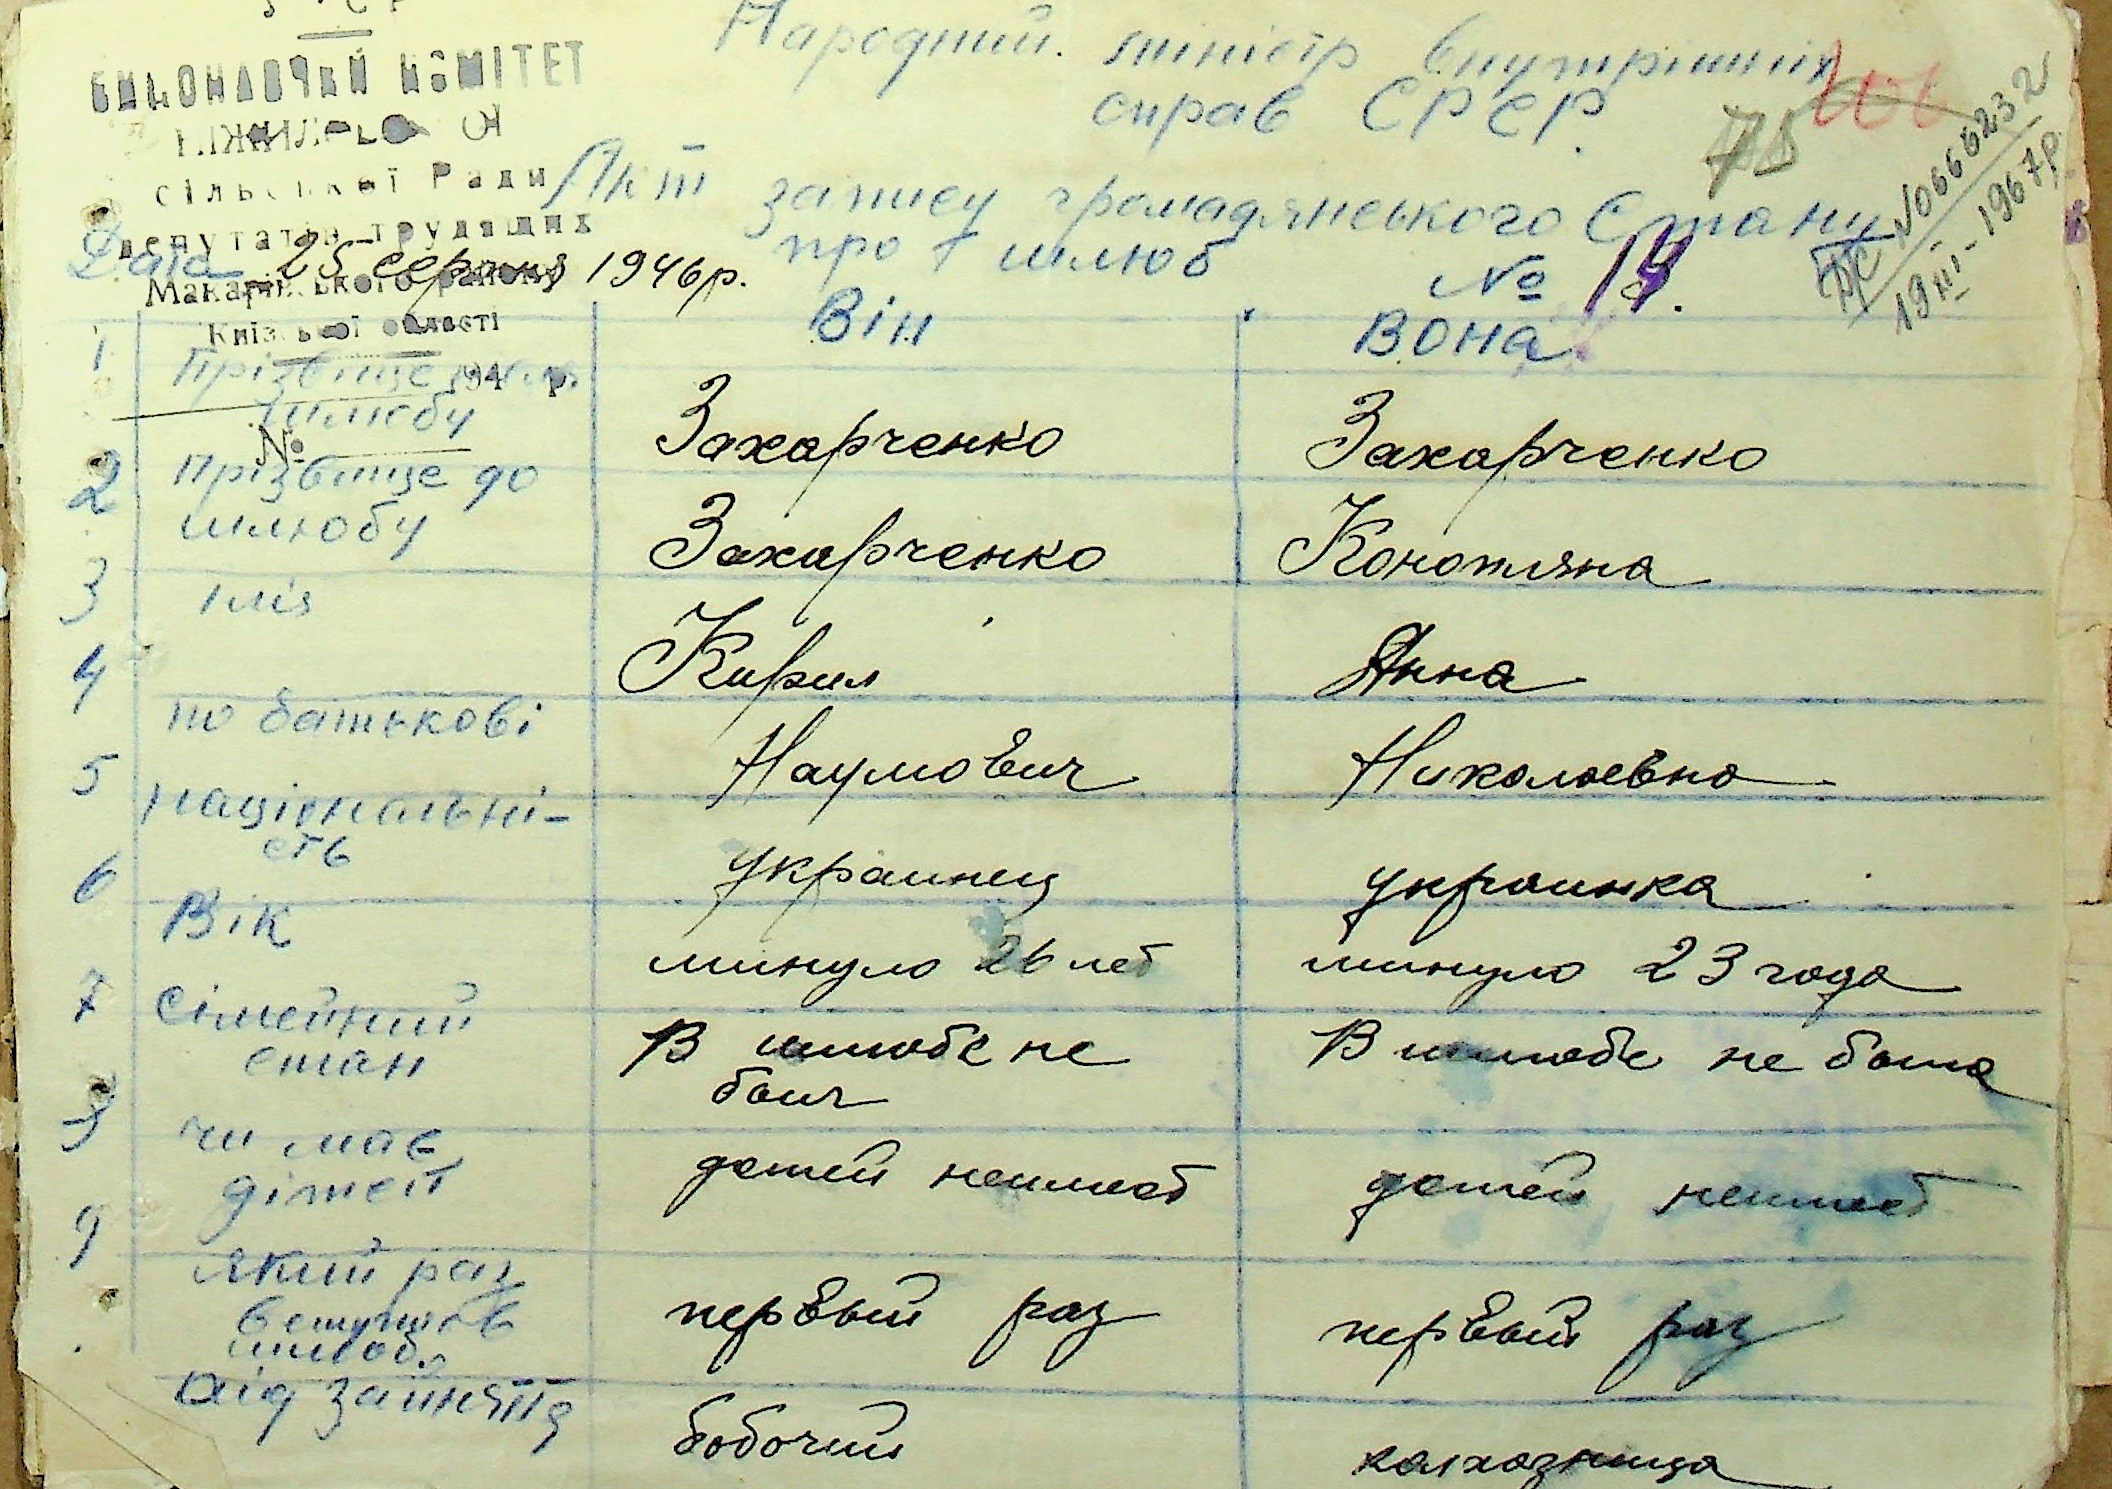 Народний міністр внутрішніх
справ СРСР.
ВИКОНАВЧИЙ КОМІТЕТ
сільської Ради
депутатів трудящих
Макарівського району
Київської області
194 р.
№
75
№0666232
19 III-1967р
Акт запису громадянського стану
про шлюб
№ 14.
Дата 25 серпня 1946р.
Він Вона
1 Прізвище шлюбу Захарченко Захарченко
2 прізвище до шлюбу Захарченко Конопляна
3 імя Кирил Анна
4 по батькові Наумович Николаевна
5 національні-
сть украинец украинка
6 Вік минуло 26 лет минуло 23 года
7 Сімейний стан В шлюбе не был В шлюбе не была
чи має дітей детей неимеет детей неимеет
9 який раз вступає в шлюб первый раз первый раз
рід заняття бобочий колхозница